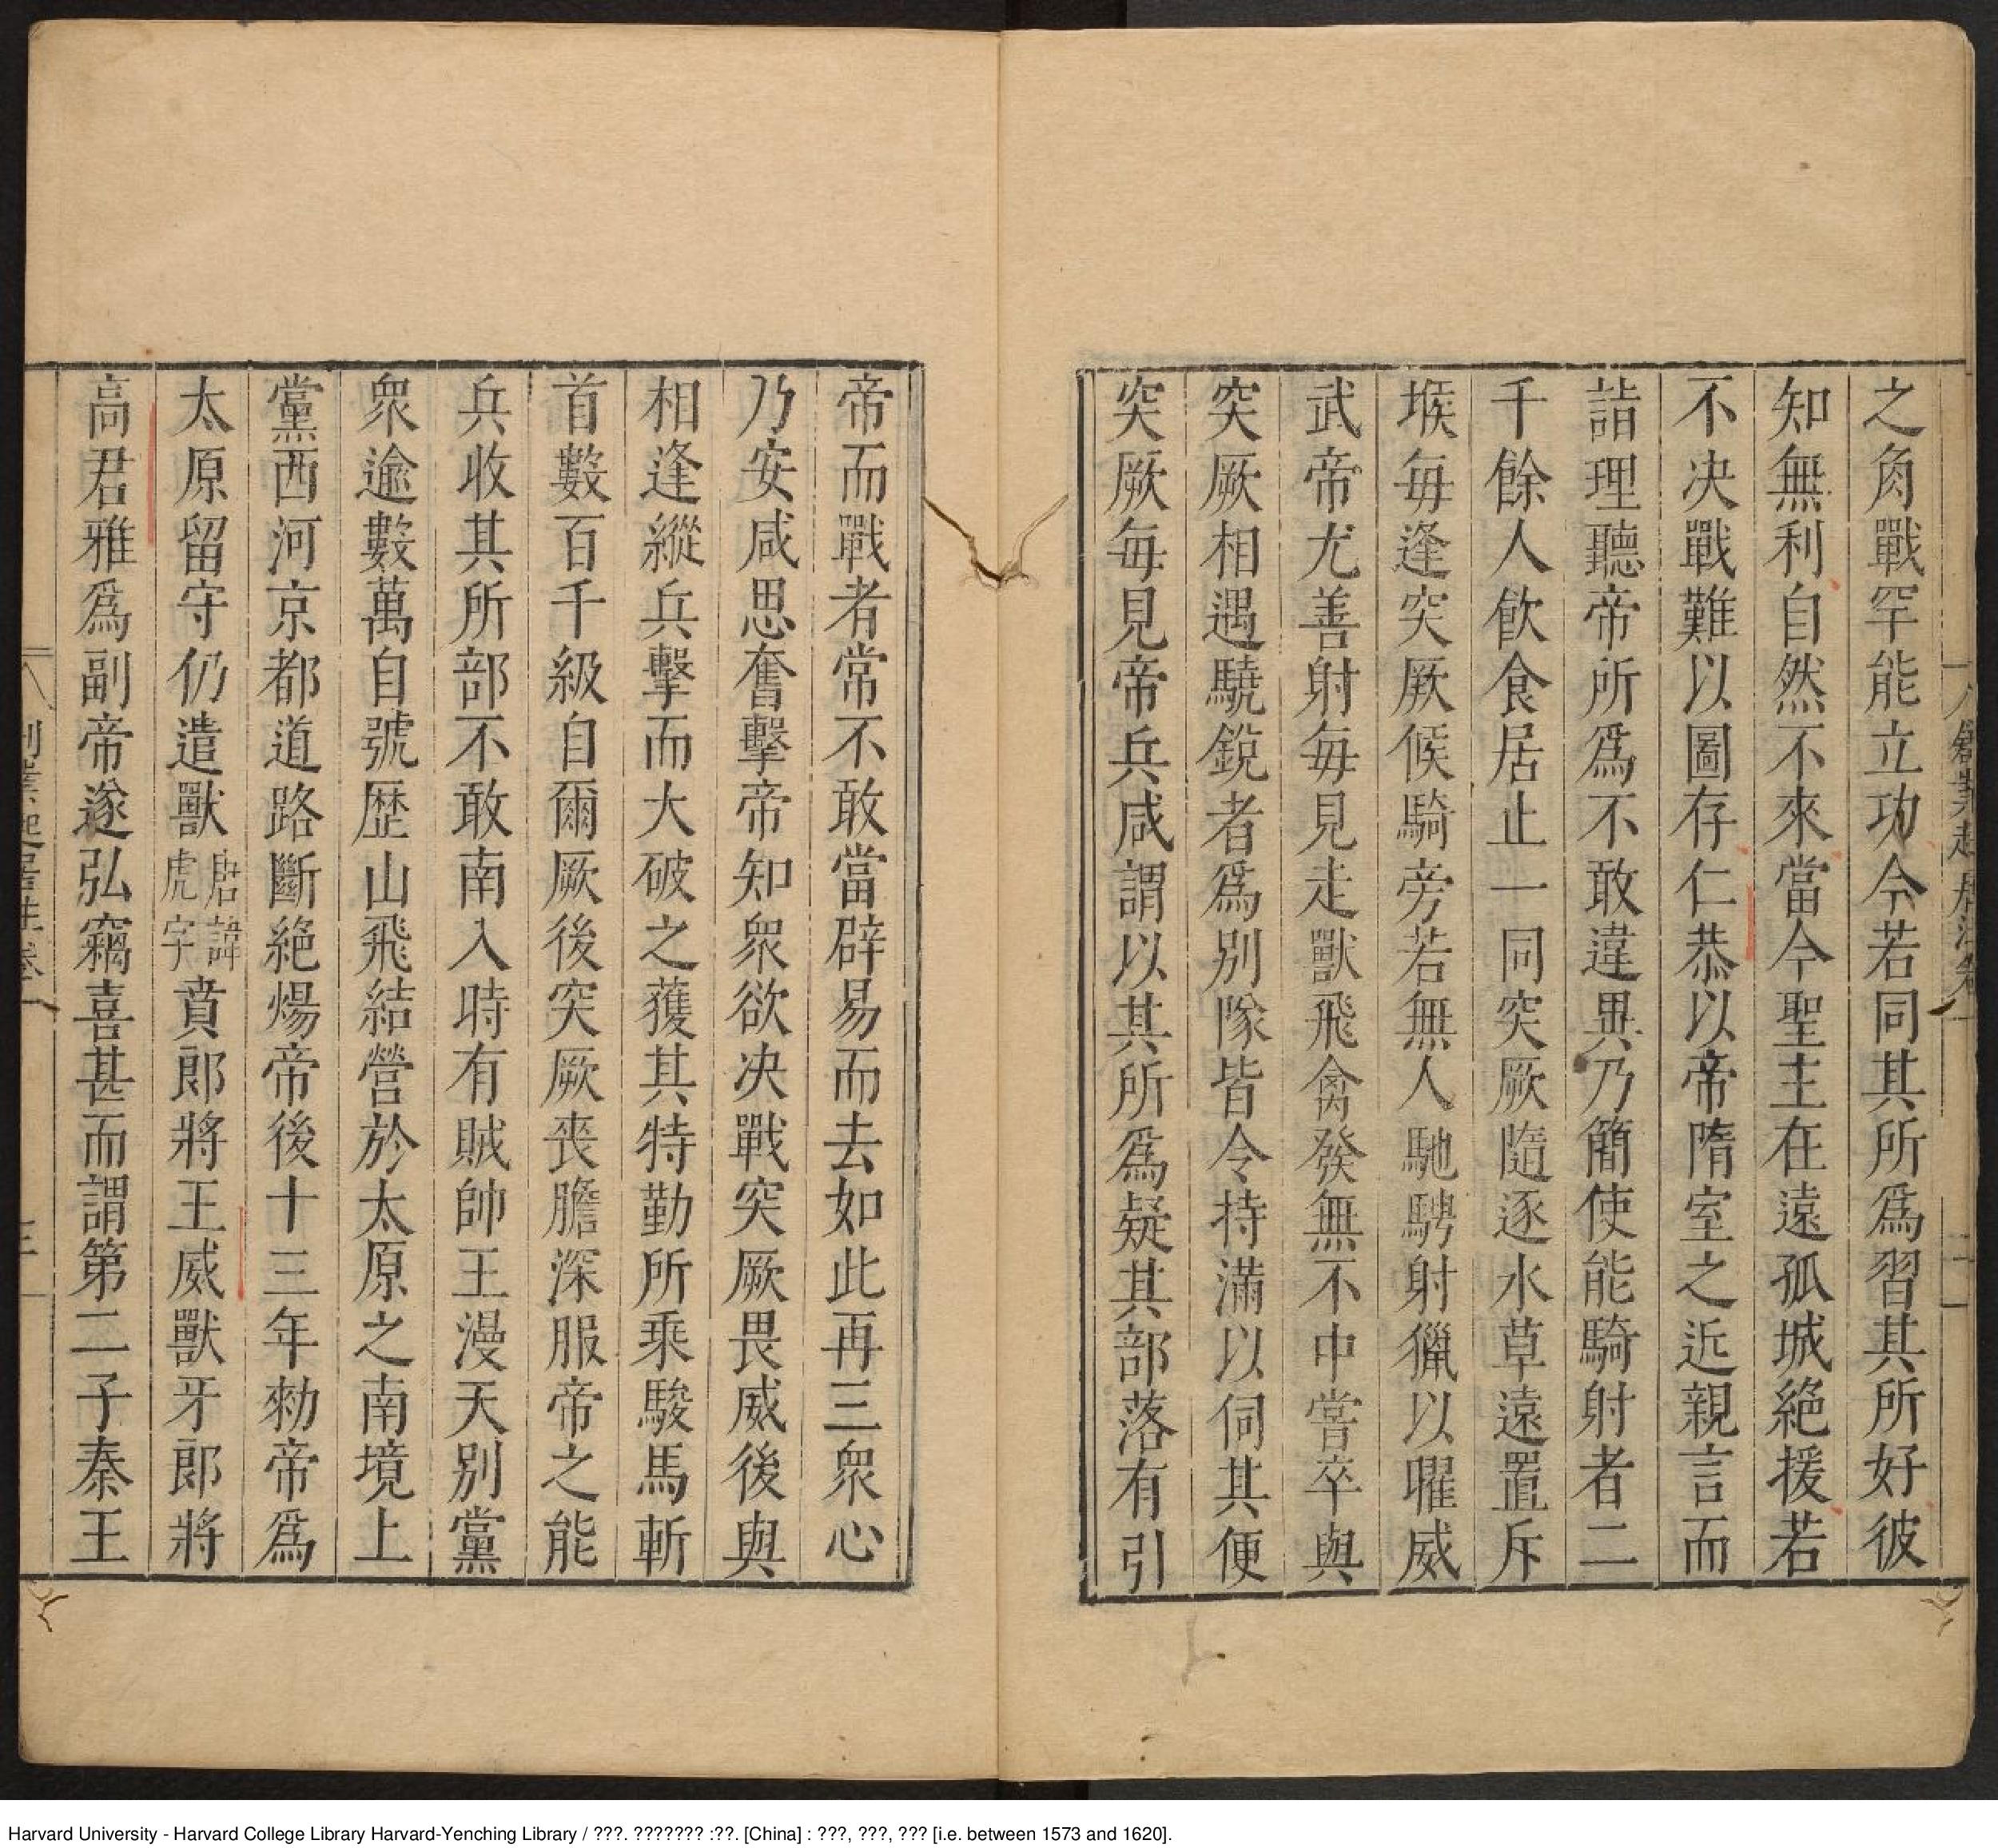 之角戰罕能立功今若同其所爲習其所好彼
知無利自然不來當今聖主在遠孤城絶援若
不決戰難以圖存仁恭以帝隋室之近親言而
詣理聽帝所爲不敢違異乃簡使能騎射者二
千餘人飲食居止一同突厥隨逐水草遠置斥
堠毎逢突厥候騎旁若無人馳騁射獵以曜威
武帝尤善射毎見走獸飛禽發無不中嘗卒與
突厥相遇驍銳者爲別隊皆令持滿以伺其便
突厥毎見帝兵咸謂以其所爲疑其部落有引
帝而戰者常不敢當辟易而去如此再三衆心
乃安咸思奮擊帝知衆欲決戰突厥畏威後與
相逢縱兵擊而大破之獲其特勤所乘駿馬斬
首數百千級自爾厥後突厥喪膽深服帝之能
兵收其所部不敢南入時有賊帥王漫天別黨
衆逾數萬自號歷山飛結營於太原之南境上
黨西河京都道路斷絶煬帝後十三年勑帝爲
太原留守仍遣獸唐諱虎字賁郎將王威獸牙郎將
高君雅爲副帝遂弘竊喜甚而謂第二子秦王
創業起居注卷一
三
Harvard University - Harvard College Library Harvard-Yenching Library / ???. ??????? :??. [China] : ???, ???, ??? [i.e. between 1573 and 1620].